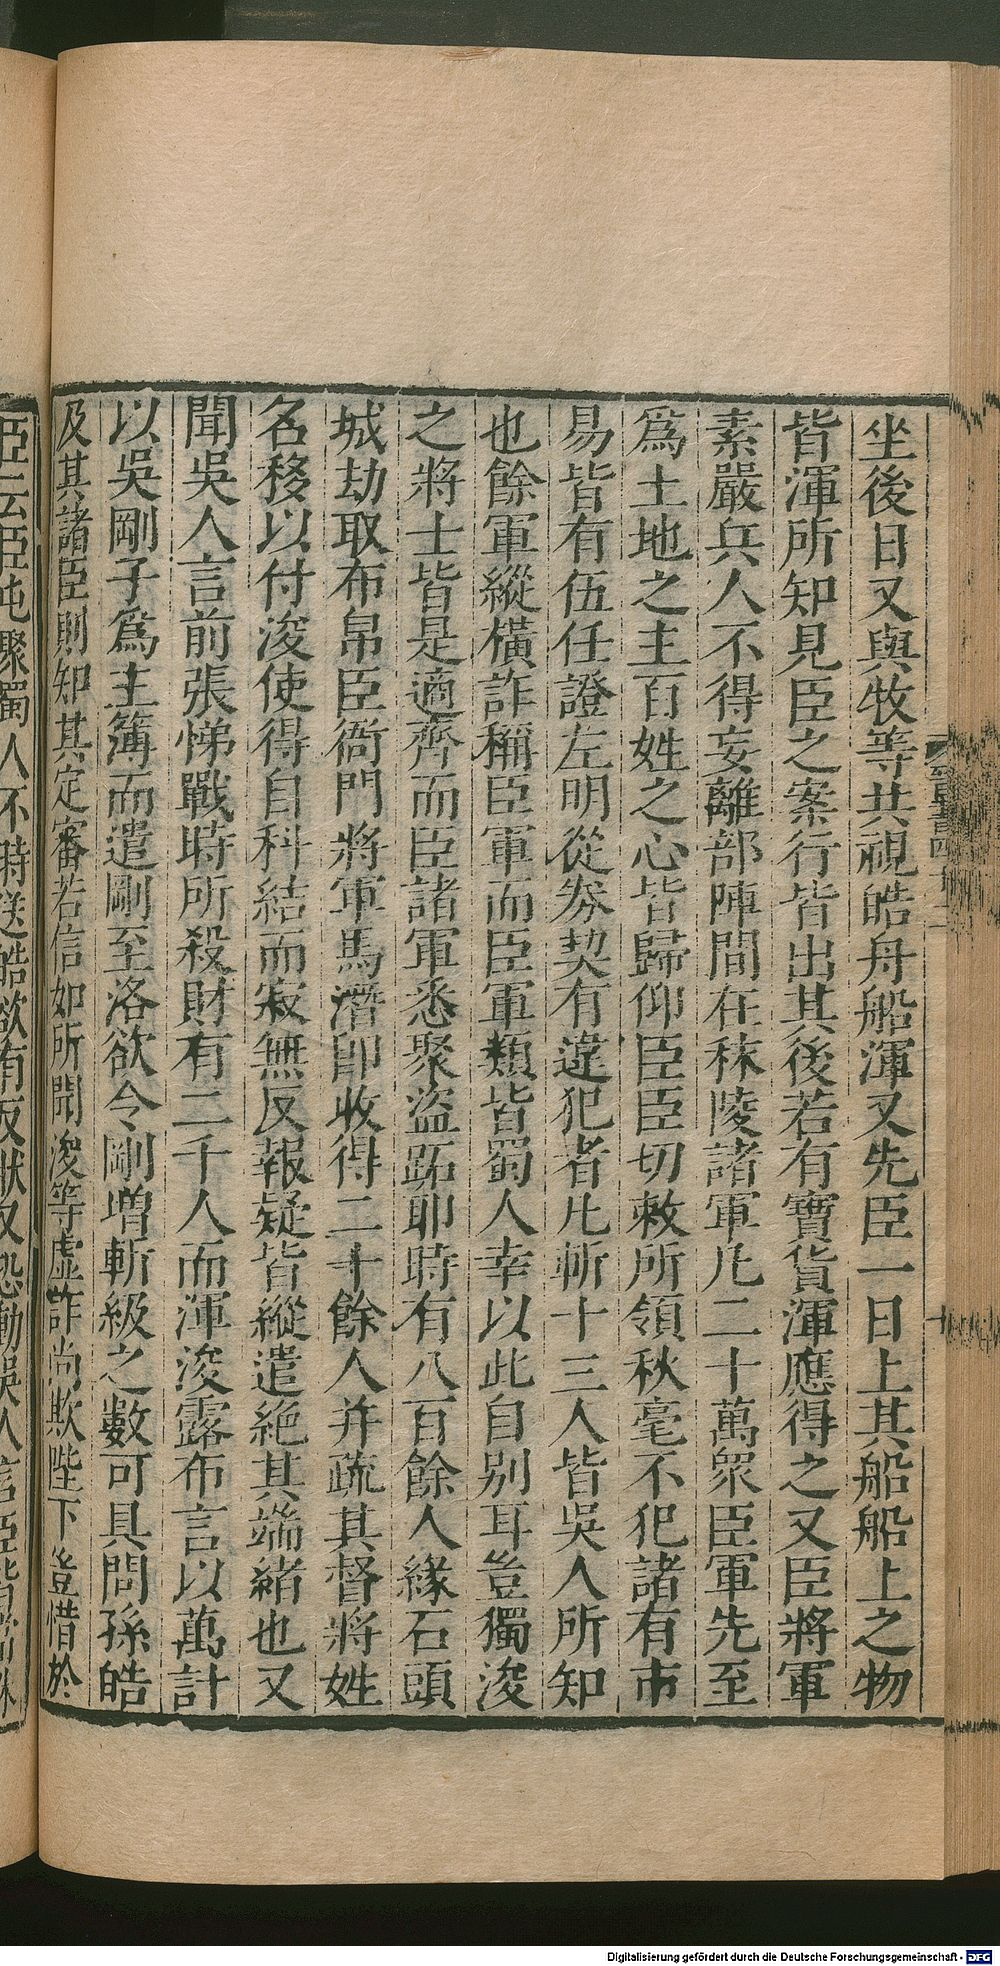 坐後日又與牧等共視皓舟船渾又先臣一日上其船船上之物
皆渾所知見臣之案行皆出其後若有寶貨渾應得之又臣將軍
素嚴兵人不得妄離部陣間在秣陵諸軍凡二十萬眾臣軍先至
爲土地之主百姓之心皆歸仰臣臣切敕所領秋毫不犯諸有市
易皆有伍任證左明從券契有違犯者凡斬十三人皆吳人所知
也餘軍縱橫詐稱臣軍而臣軍類皆蜀人幸以此自別耳豈獨浚
之將士皆是適齊而臣諸軍悉聚盜跖耶時有八百餘人緣石頭
城劫取布帛臣衙門將軍馬潛即收得二十餘人并疏其督將姓
名移以付浚使得自科結而寂無反報疑皆縱遣絕其端緒也又
聞吳人言前張悌戰時所殺財有二千人而渾浚露布言以萬計
以吳剛子爲主簿而遣剛至洛欲令剛增斬級之數可具問孫皓
及其諸臣則知其定審若信如所聞浚等虛詐尚欺陛下豈惜於
臣云臣屯聚蜀人不時送皓欲有反狀又恐動吳人言臣皆當誅
Digitalisierung gefördert durch die Deutsche Forschungsgemeinschaft - DFG